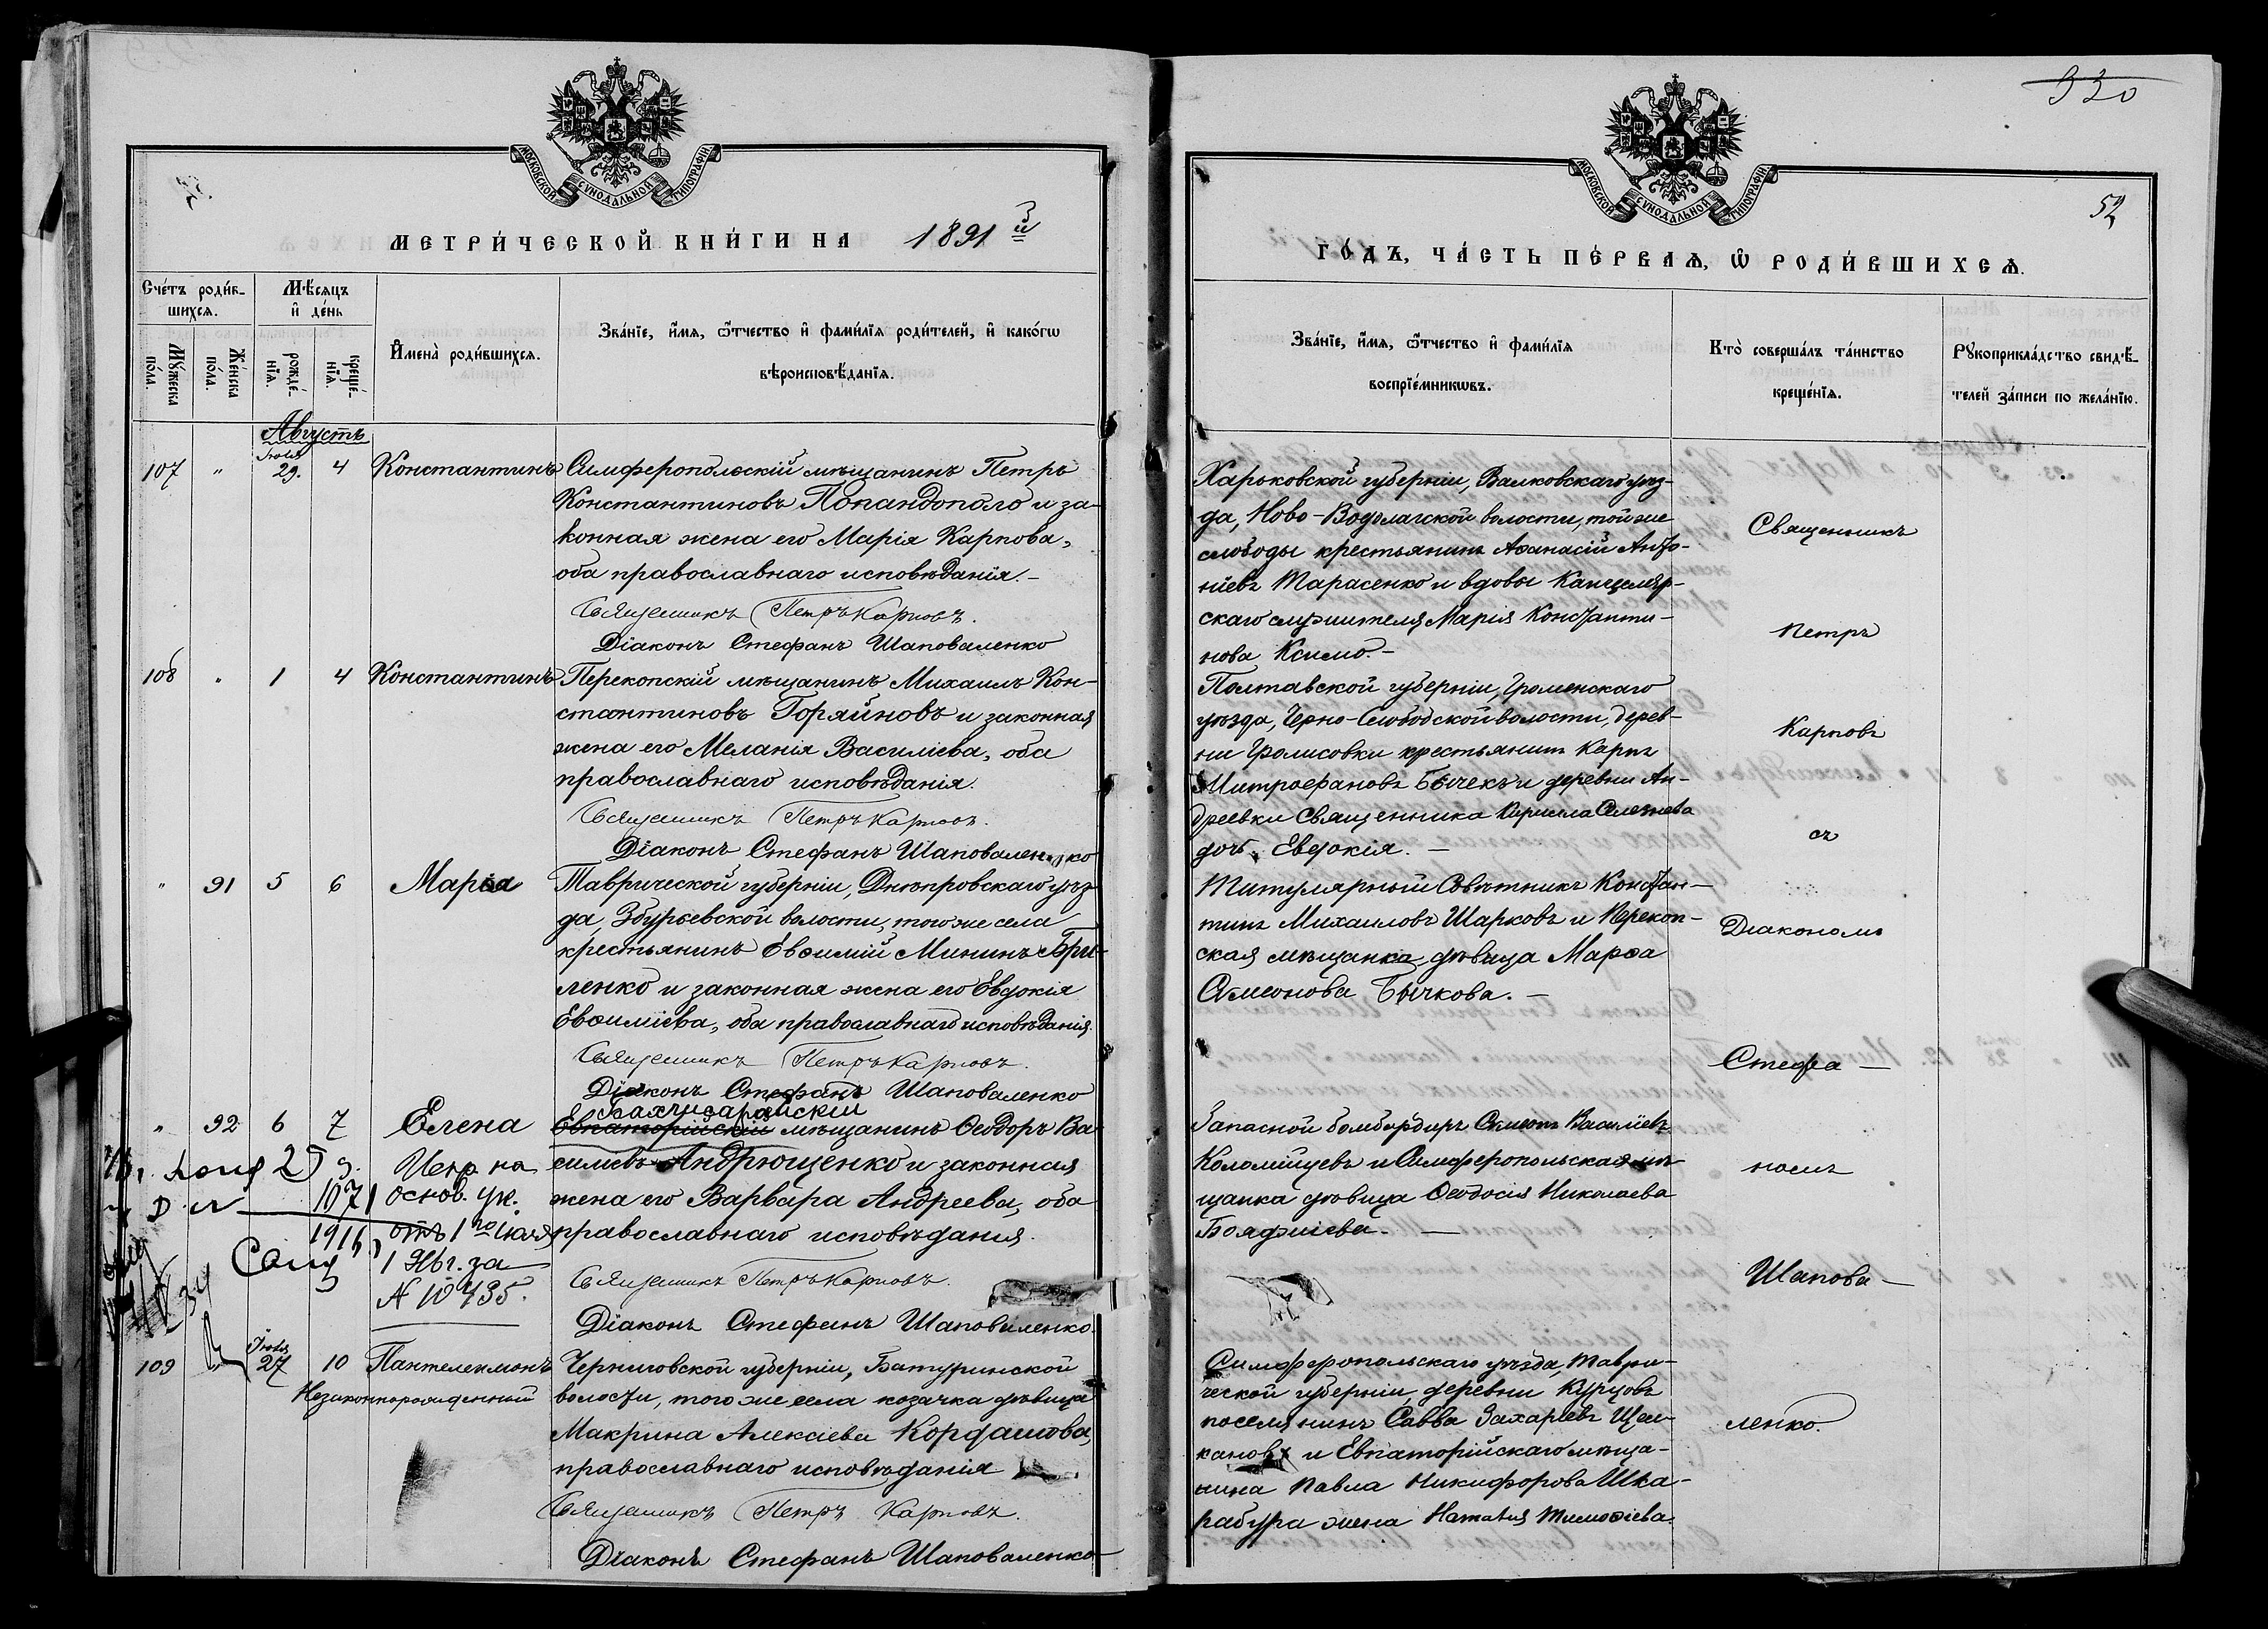 МОСКОВСКОЙ СѴНОДАЛЬНОЙ ТИПОГРАФІИ
МЕТРИ́ЧЕСКОЙ КНИ́ГИ НА 1891 й
Сче́тъ роди́в-
шихся.
Мѣ́сяцъ
и҆ де́нь
Мꙋ́жеска
по́ла.
Же́нска
по́ла.
рожде́-
нїя.
креще́-
нїя.
И҆мена̀ роди́вшихся.
Зва́нїе, и҆́мя, ѻ҆́тчество и҆ фами́лїя роди́телей, и҆ како́гѡ
вѣроисповѣ́данїя.
Августъ
107 " Іюля 29. 4 Константинъ Симферопольскій мѣщанинъ Петръ
Константиновъ Попандополо и за-
конная жена его Марія Карпова,
оба православнаго исповѣданія.-
Священникъ Петръ Карповъ.
Діаконъ Стефанъ Шаповаленко
108 " 1 4 Константинъ Перекопскій мѣщанинъ Михаилъ Кон-
стантиновъ Горяйновъ и законная
жена его Меланія Василіева, оба
православнаго исповѣданія.
Священникъ Петръ Карповъ.
Діаконъ Стефанъ Шаповаленко
" 91 5 6 Марѳа Таврической губерніи, Днѣпровскаго уѣз-
да, Збурьевской волости, того же села
крестьянинъ Евѳимій Мининъ Гри-
ленко и законная жена его Евдокія
Евѳиміева, оба православнаго исповѣданія.
Священникъ Петръ Карповъ.
Діаконъ Стефанъ Шаповаленко
Бахчисарайскій
" 92 6 7 Елена Евпаторійскій мѣщанинъ Ѳеодоръ Ва-
силіевъ Андрющенко и законная
жена его Варвара Андреева, оба
православнаго исповѣданія.
Испр. на
основ. ук.
отъ 1го Іюля
1916
1 Явг. за
№ 10735.
Священникъ Петръ Карповъ.
Діаконъ Стефанъ Шаповаленко.
109 Іюля 27 10 Пантелеимонъ Черниговской губерніи, Батуринской
Незаконнорожденный волости, того же села козачка дѣвица
Макрина Алексіева Кордашова,
православнаго исповѣданія
Священникъ Петръ Карповъ.
Діаконъ Стефанъ Шаповаленко
930
52
МОСКОВСКОЙ СѴНОДАЛЬНОЙ ТИПОГРАФІИ
ГО́ДЪ, ЧА́СТЬ ПЕ́РВАЯ, Ѡ҆ РОДИ́ВШИХСЯ.
Зва́нїе, и҆́мя, ѻ҆́тчество и҆ фами́лїя
воспрїе́мникѡвъ.
Кто̀ соверша́лъ та́инство
креще́нїя.
Рꙋкоприкла́дство свидѣ́-
телей за́писи по жела́нїю.
Харьковской губерніи, Валковскаго уѣз-
да, Ново-Водолагской волости, той же
слободы крестьянинъ Аѳанасій Анто-
ніевъ Тарасенко и вдова Канцеляр-
скаго служителя Марія Константи-
нова Ксимо.-
Полтавской губерніи, Роменскаго
уѣзда, Черно-Слободской волости, дерев-
ни крестьянинъ Карпъ
Митрофановъ Бычекъ и деревни Ан-
дреевки Священника Кирилла Селезнева
дочь Евдокія.-
Титулярный Совѣтникъ Констан-
тинъ Михаиловъ Шарковъ и Перекоп-
ская мѣщанка дѣвица Марѳа
Симеонова Бычкова.-
Запасной бомбардиръ Симеонъ Василіевъ
Коломійцевъ и Симферопольская мѣ-
щанка дѣвица Ѳеодосія Николаева
Бояджіева.-
Симферопольскаго уѣзда, Таври-
ческой губерніи, деревни Курцовъ
поселянинъ Савва Захаріевъ Щел-
кановъ и Евпаторійскаго мѣща-
нина Павла Никифорова Шка-
рабура жена Наталія Тимоѳіева.
Священникъ
Петръ
Карповъ
съ
Діакономъ
Стефа-
номъ
Шапова-
ленко.